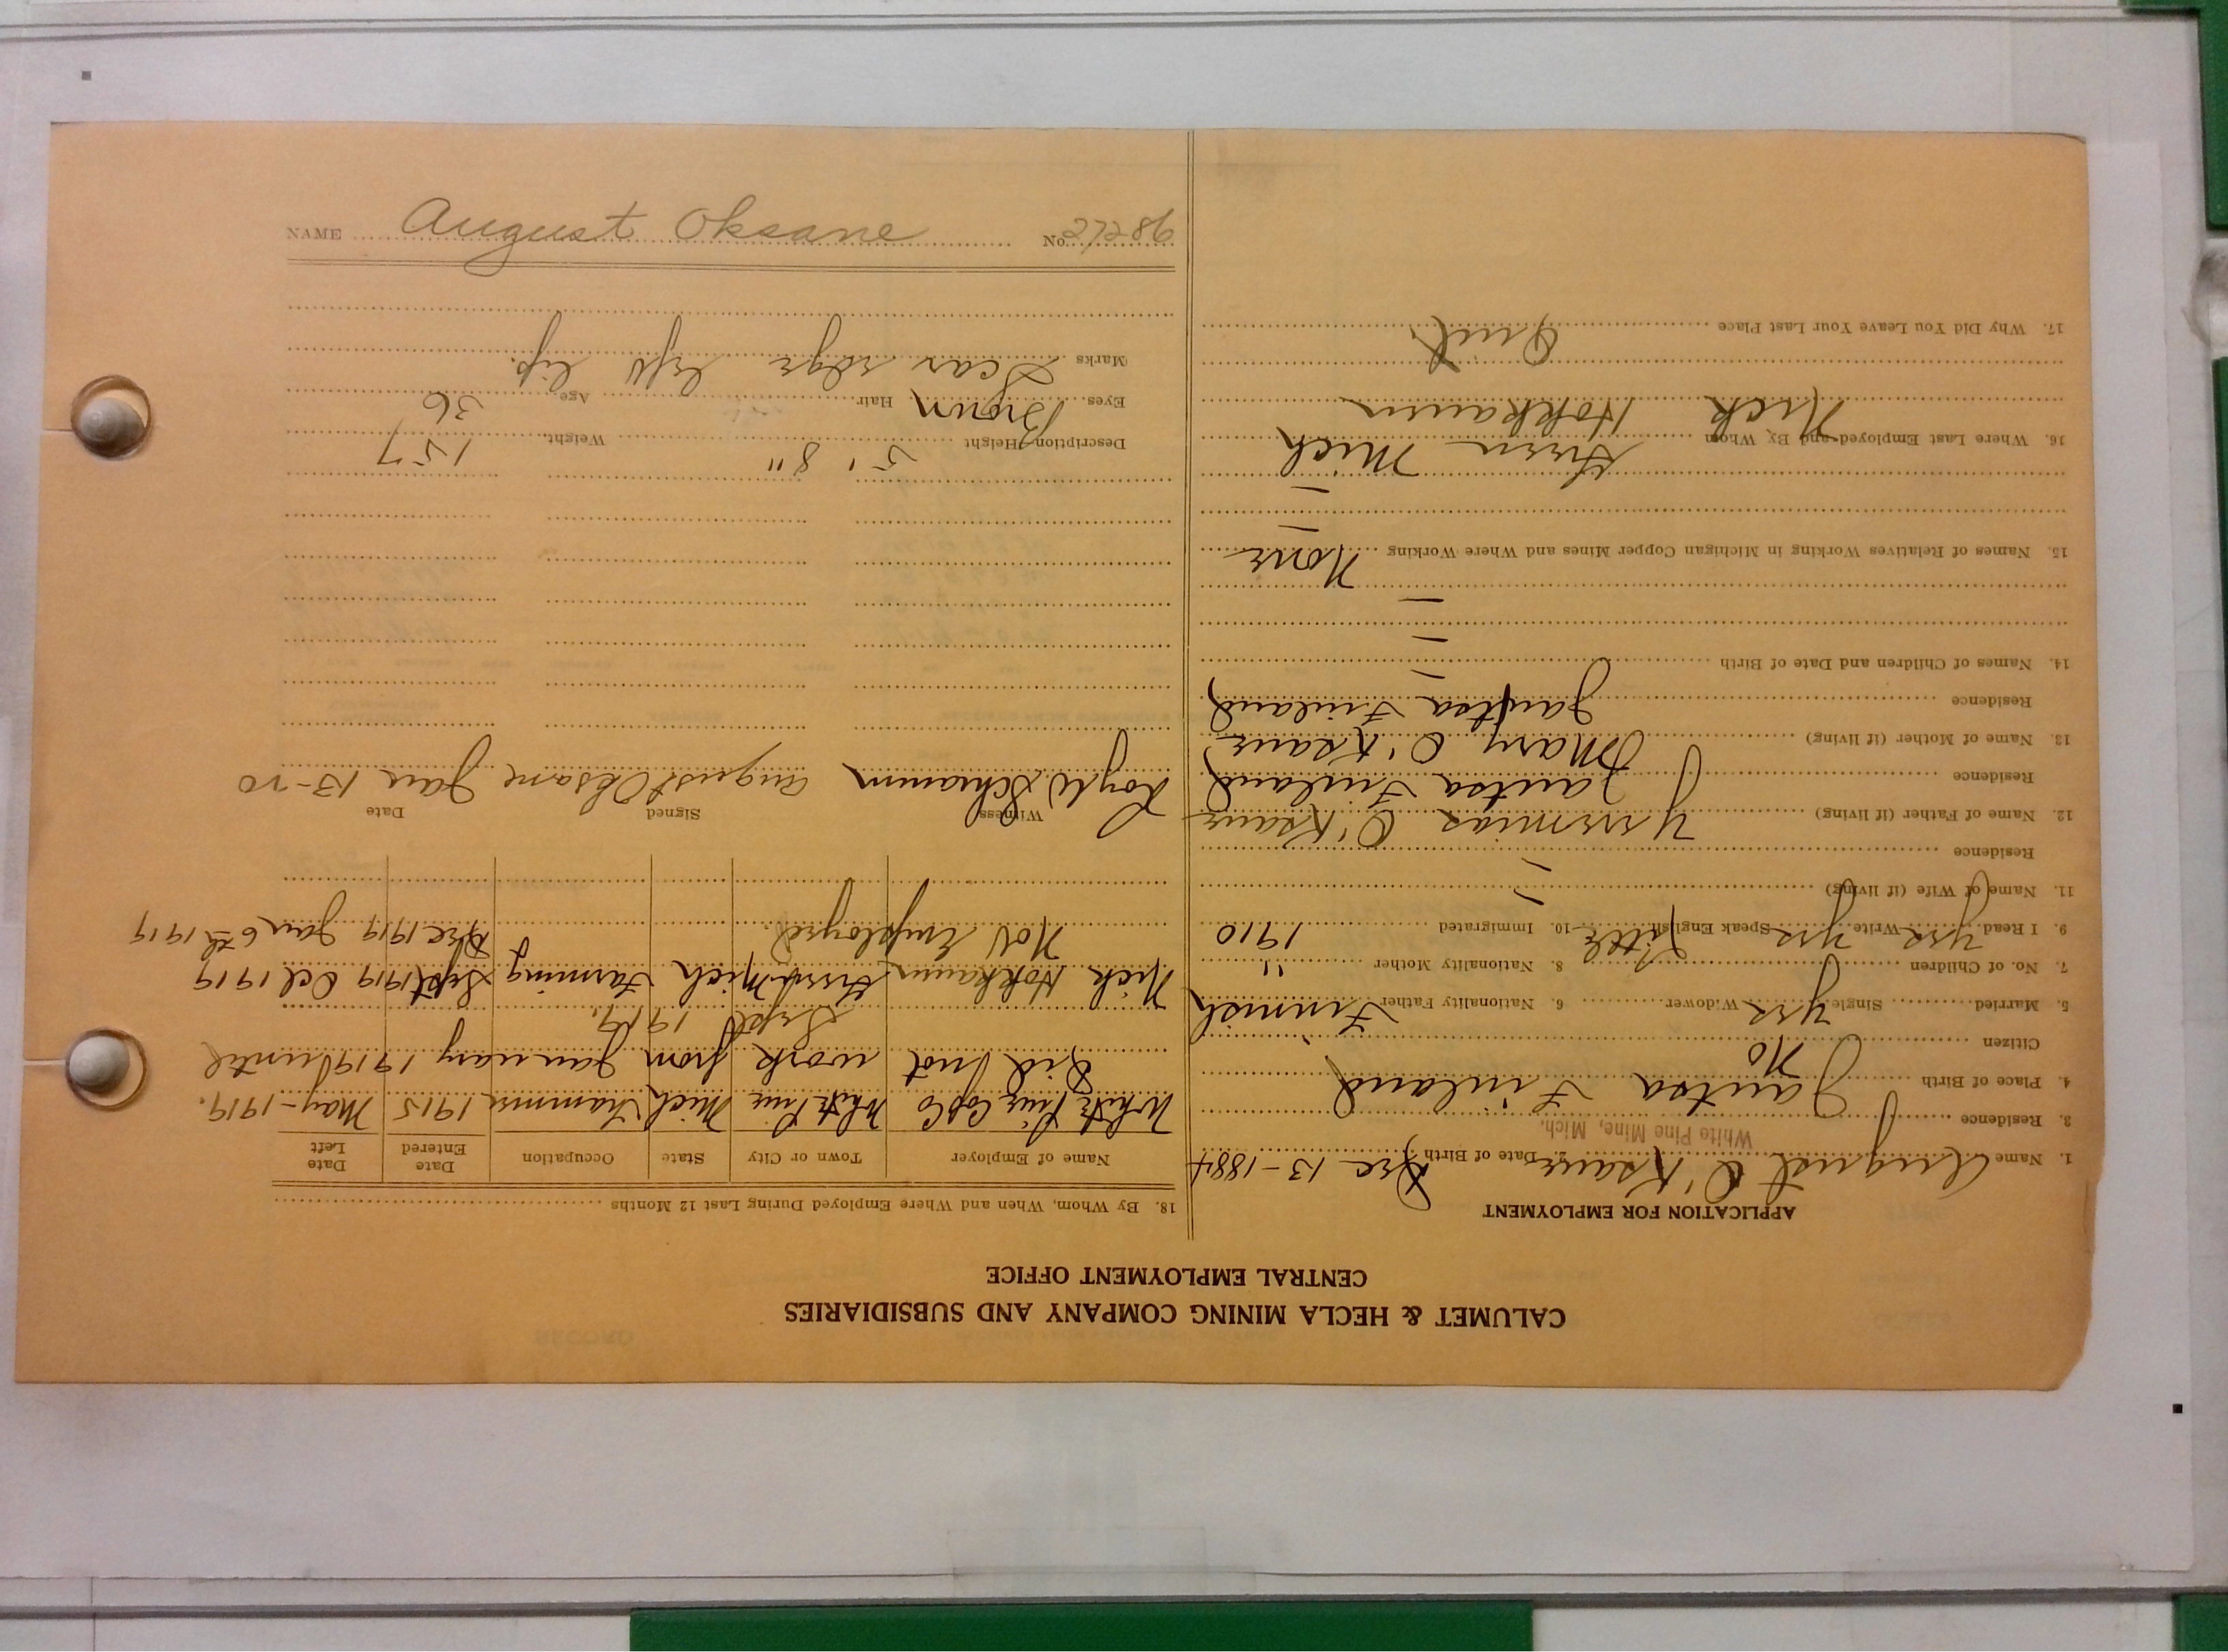 CALUMET & HECLA MINING COMPANY AND SUBSIDIARIES
CENTRAL EMPLOYMENT OFFICE
APPLICATION FOR EMPLOYMENT
1. Name August O'Ksane 2. Date of Birth Dec 13-1884
White Pine Mine, Mich.
3. Residence
4. Place of Birth Jautsa Finland
Citizen No
5. Married Single yes Widower 6. Nationality Father Finnish
7. No. of Children 8. Nationality Mother "
9. I Read yes Write yes Speak English Little 10. Immigrated 1910
11. Name of Wife (if living) —
Residence —
12. Name of Father (if living) O'Ksane
Residence Jautsa Finland
13. Name of Mother (if living) Mary O'Ksane
Residence Jautsa Finland
14. Names of Children and Date of Birth —
—
—
15. Names of Relatives Working in Michigan Copper Mines and Where Working None
—
—
16. Where Last Employed and By Whom Mich
Nick Hokkanen
17. Why Did You Leave Your Last Place Quit.
18. By Whom, When and Where Employed During Last 12 Months
Name of Employer Town or City State Occupation Date Entered Date Left
White Pine Cop Co White Pine Mich Trammer 1915 May-1919.
Did not work from January 1919 until
Sept 1919.
Nick Hokkanen Mich Farming Sept 1919 Oct 1919
Not Employed. Dec 1919 Jan 6th 1919
Witness Signed Date
Schramm August Oksane Jan 13-20
Description Height 5' 8" Weight 157
Eyes Brown Hair Age 36
Marks Scar edge left lip.
NAME August Oksane No. 27286